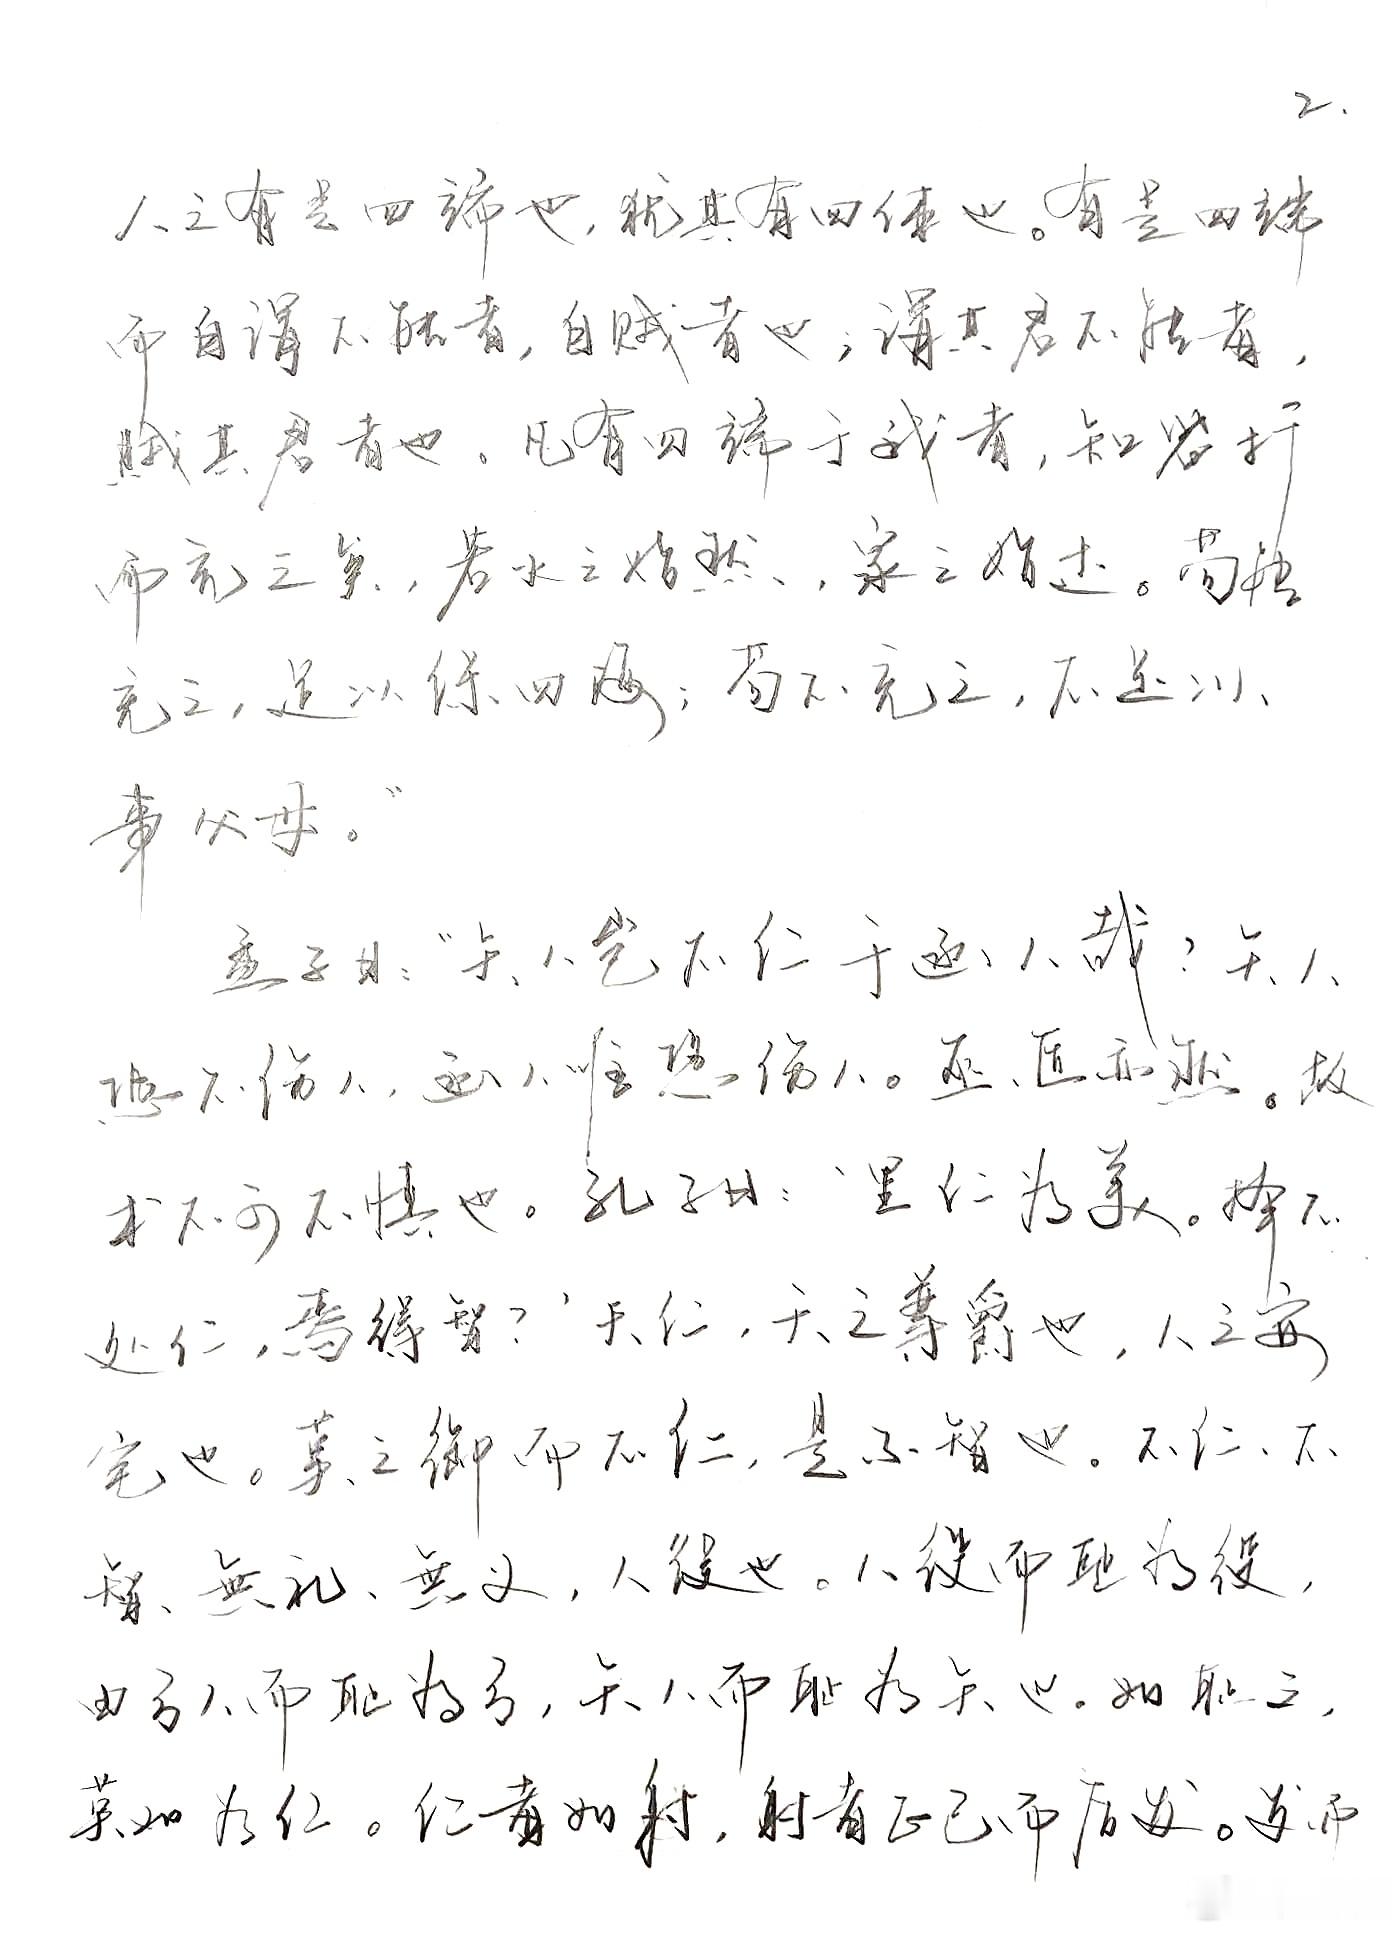 2.
人之有是四端也,犹其有四体也。有是四端
而自谓不能者,自贼者也;谓其君不能者,
贼其君者也。凡有四端于我者,知皆扩
而充之矣,若水之始然,泉之始达。苟能
充之,足以保四海;苟不充之,不足以
事父母。”
孟子曰:“矢人岂不仁于函人哉?矢人
恐不伤人,函人惟恐伤人。巫、匠亦然。故
术不可不慎也。孔子曰:‘里仁为美。择不
处仁,焉得智?’夫仁,天之尊爵也,人之安
宅也。莫之御而不仁,是不智也。不仁、不
智、無礼、無义,人役也。人役而耻为役,
由弓人而耻为弓,矢人而耻为矢也。如耻之,
莫如为仁。仁者如射,射者正己而后发。发而